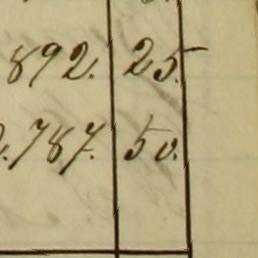 892. 25.
.787. 50.